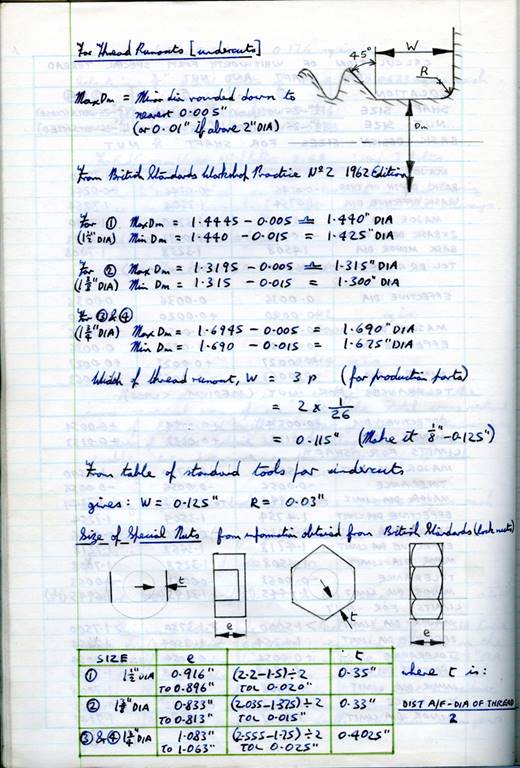 For Thread Runouts [undercuts]
45° W
R
Dm
Max Dm = Minor dia rounded down to
nearest 0.005"
(or 0.01" if above 2" DIA)
From British Standards Workshop Practice No 2 1962 Edition
For ① Max Dm = 1.4445 - 0.005 ≏ 1.440" DIA
(1½" DIA) Min Dm = 1.440 - 0.015 = 1.425" DIA
For ② Max Dm = 1.3195 - 0.005 ≏ 1.315" DIA
(1⅜" DIA) Min Dm = 1.315 - 0.015 = 1.300" DIA
For ③ & ④
(1¾" DIA) Max Dm = 1.6945 - 0.005 = 1.690" DIA
Min Dm = 1.690 - 0.015 = 1.675" DIA
Width of thread runout, W = 3 p (for production parts)
= 2 x 1/26
= 0.115" (Make it ⅛" - 0.125")
From table of standard tools for undercuts
gives: W = 0.125" R = 0.03"
Size of Special Nuts from information obtained from British Standards (lock nuts)
t
e
t
e
SIZE e t
① 1½" DIA 0.916" (2.2-1.5)÷2 0.35"
TO 0.896" TOL 0.020"
② 1⅜" DIA 0.833" (2.035-1.375)÷2 0.33"
TO 0.813" TOL 0.015"
③ & ④ 1¾" DIA 1.083" (2.555-1.75)÷2 0.4025"
TO 1.063" TOL 0.025"
where t is:
DIST A/F - DIA OF THREAD
2